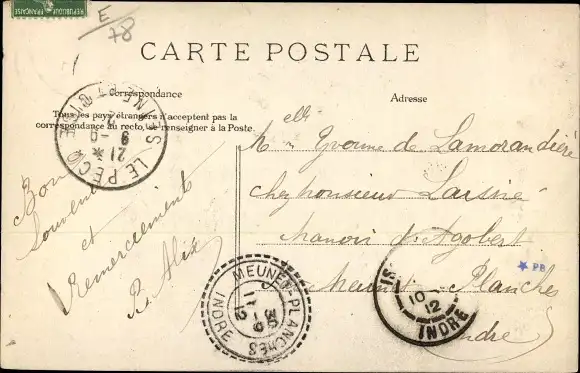 REPUBLIQUE FRANÇAISE
E/78
CARTE POSTALE
Correspondance
Adresse
Tous les pays étrangers n'acceptent pas la
correspondance au recto, se renseigner à la Poste.
LE PECQ
21
9-9
Bon
Souvenir
et
Remerciements
R. Alix
Melle Yvonne de Lamorandière
chez monsieur
Manoir d'Agobert
Meunet-Planches
Indre
MEUNET-PLANCHES
INDRE
IS
10
12
INDRE
PB